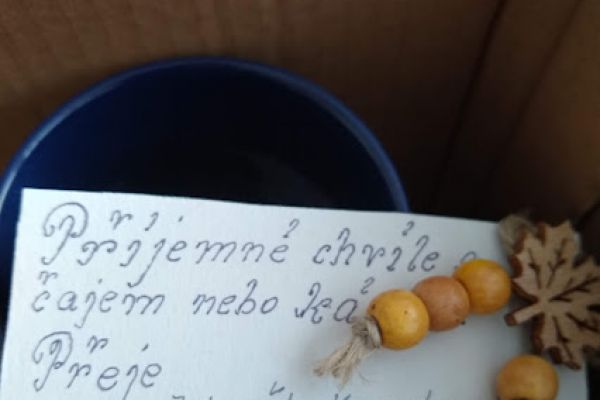 Příjemné chvíle
čajem nebo
Přeje